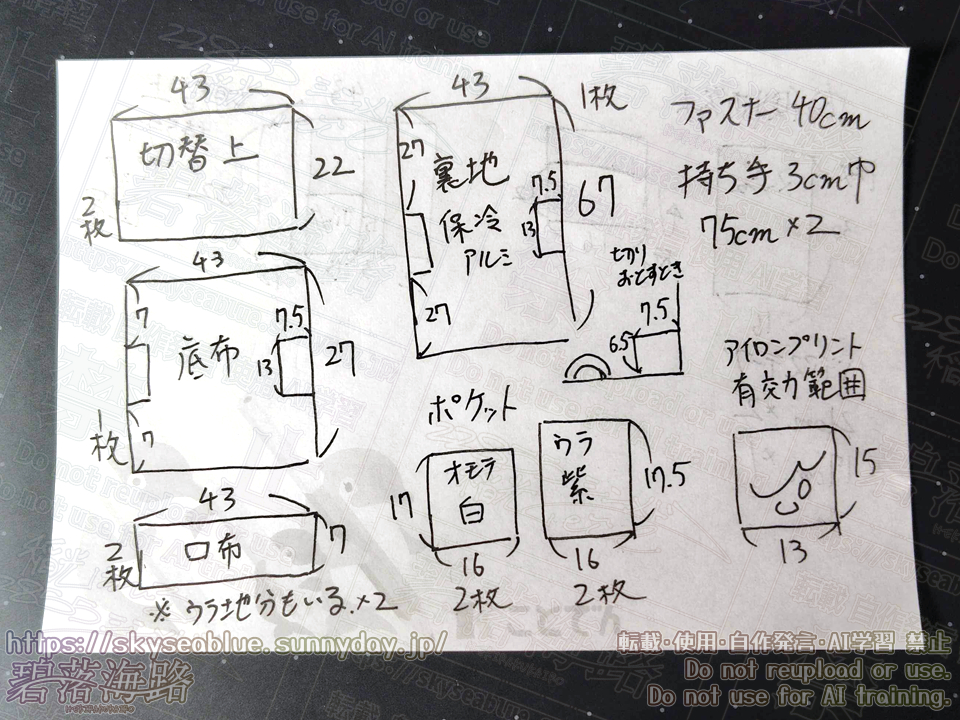 43
切替上
22
2枚
43
7
7.5
底布
13
27
7
1枚
43
口布
7
2枚
※ ウラ地分もいる。×2
43
1枚
27
裏地
7.5
保冷
13
67
アルミ
27
切り
おとすとき
7.5
6.5
ファスナー 40cm
持ち手 3cm巾
75cm×2
ポケット
オモテ
白
17
16
2枚
ウラ
紫
17.5
16
2枚
アイロンプリント
有効範囲
15
13
ことでん
https://skyseablue.sunnyday.jp/
碧落海路
転載・使用・自作発言・AI学習 禁止
Do not reupload or use.
Do not use for AI training.